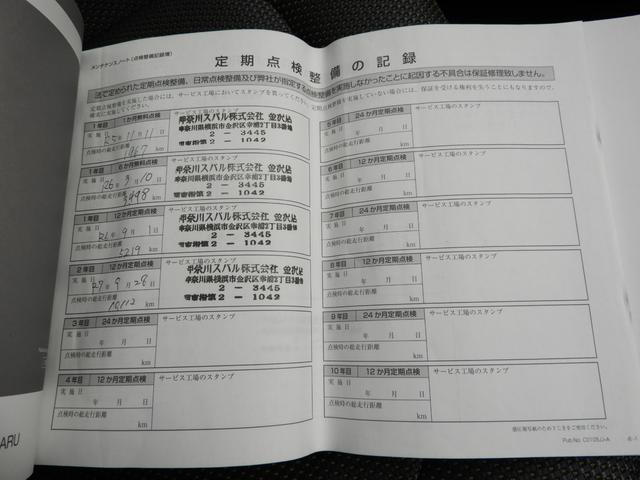 メンテナンスノート（点検整備記録簿）
定期点検整備の記録
法で定められた定期点検整備、日常点検整備及び弊社が指定する点検整備を実施しなかったことに起因する不具合は保証修理致しません。
1年目 1か月無料点検
サービス工場のスタンプ
実施日 R5年11月11日
点検時の総走行距離
1067 km
神奈川スバル株式会社 金沢店
神奈川県横浜市金沢区幸浦2丁目3番
2-3445
2-1042
1年目 6か月無料点検
サービス工場のスタンプ
実施日 R6年3月10日
点検時の総走行距離
3498 km
神奈川スバル株式会社 金沢店
神奈川県横浜市金沢区幸浦2丁目3番
2-3445
2-1042
1年目 12か月定期点検
サービス工場のスタンプ
実施日 9月1日
点検時の総走行距離
5219 km
神奈川スバル株式会社 金沢店
神奈川県横浜市金沢区幸浦2丁目3番
2-3445
2-1042
2年目 12か月定期点検
サービス工場のスタンプ
実施日 R7年9月28日
点検時の総走行距離
10112 km
神奈川スバル株式会社 金沢店
神奈川県横浜市金沢区幸浦2丁目3番
2-3445
2-1042
3年目 24か月定期点検
サービス工場のスタンプ
実施日
年 月 日
点検時の総走行距離
km
4年目 12か月定期点検
サービス工場のスタンプ
実施日
年 月 日
点検時の総走行距離
km
5年目 24か月定期点検
サービス工場のスタンプ
実施日
年 月 日
点検時の総走行距離
km
6年目 12か月定期点検
サービス工場のスタンプ
実施日
年 月 日
点検時の総走行距離
km
7年目 24か月定期点検
サービス工場のスタンプ
実施日
年 月 日
点検時の総走行距離
km
8年目 12か月定期点検
サービス工場のスタンプ
実施日
年 月 日
点検時の総走行距離
km
9年目 24か月定期点検
サービス工場のスタンプ
実施日
年 月 日
点検時の総走行距離
km
10年目 12か月定期点検
サービス工場のスタンプ
実施日
年 月 日
点検時の総走行距離
km
ARU